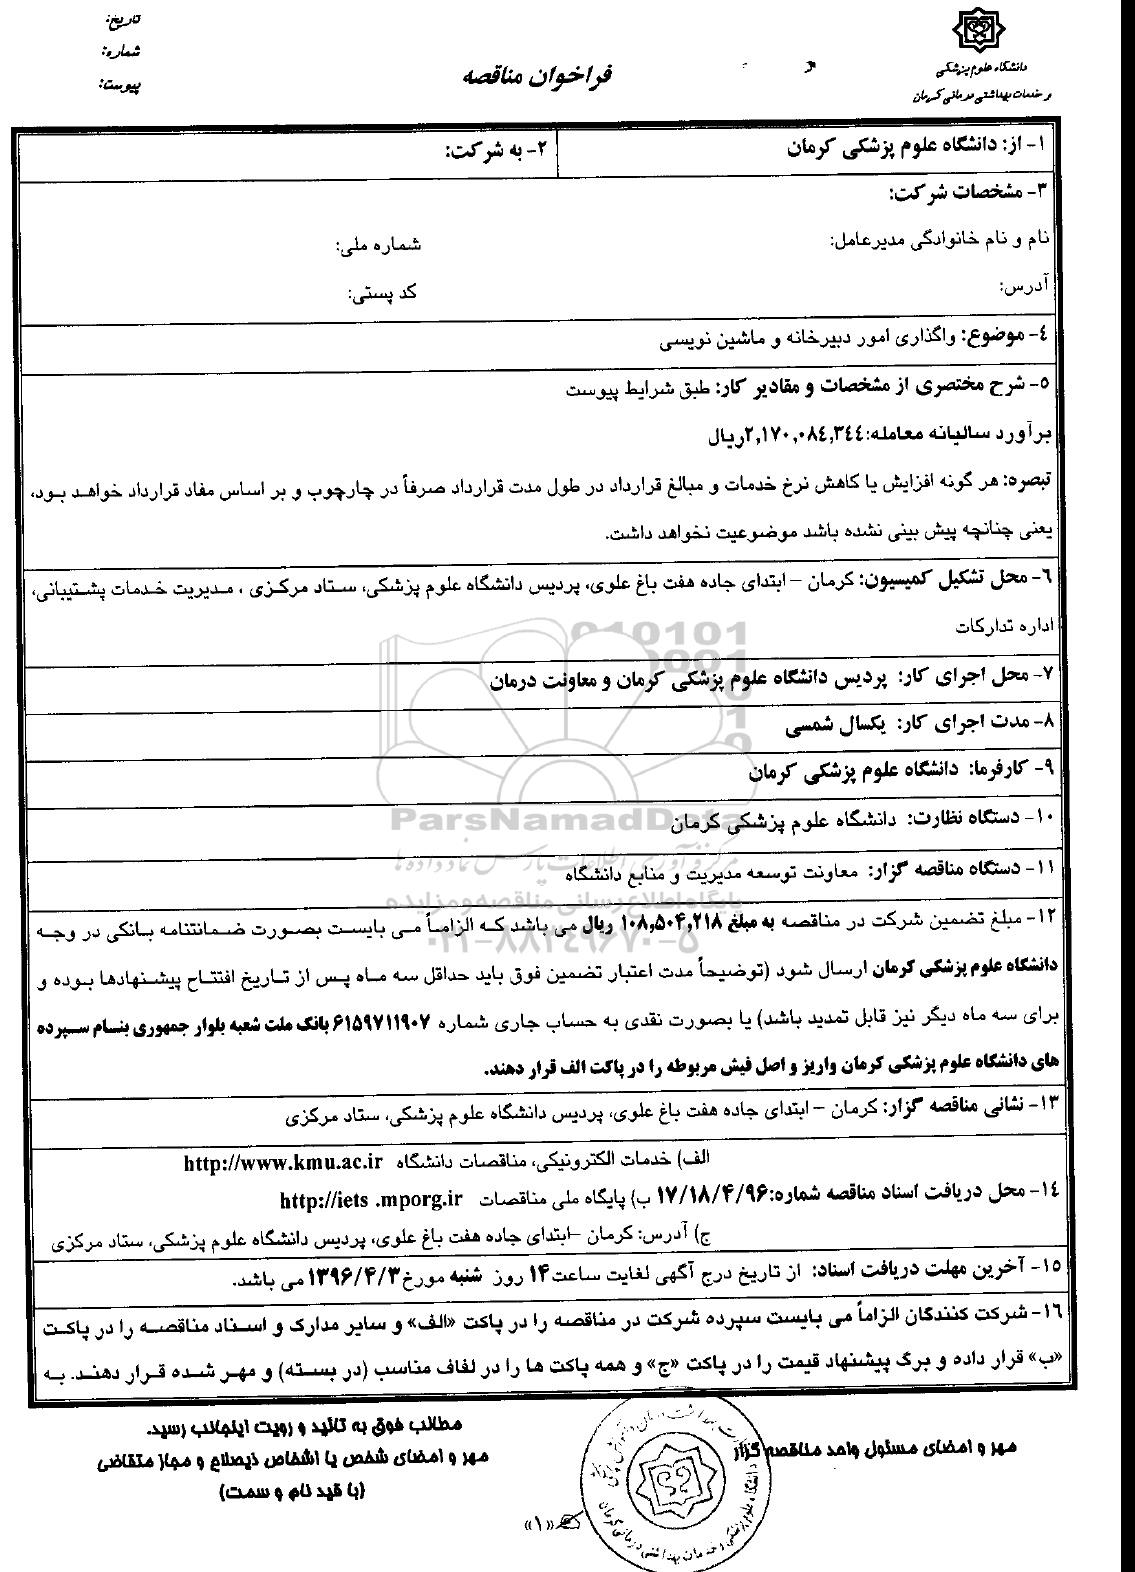 تاریخ:
شماره:
پیوست:
دانشگاه علوم پزشکی
و خدمات بهداشتی درمانی کرمان
فراخوان مناقصه
۱- از: دانشگاه علوم پزشکی کرمان
۲- به شرکت:
۳- مشخصات شرکت:
نام و نام خانوادگی مدیرعامل: شماره ملی:
آدرس: کد پستی:
۴- موضوع: واگذاری امور دبیرخانه و ماشین نویسی
۵- شرح مختصری از مشخصات و مقادیر کار: طبق شرایط پیوست
برآورد سالیانه معامله:۲,۱۷۰,۰۸۴,۳۴۴ریال
تبصره: هر گونه افزایش یا کاهش نرخ خدمات و مبالغ قرارداد در طول مدت قرارداد صرفاً در چارچوب و بر اساس مفاد قرارداد خواهد بود،
یعنی چنانچه پیش بینی نشده باشد موضوعیت نخواهد داشت.
۶- محل تشکیل کمیسیون: کرمان – ابتدای جاده هفت باغ علوی، پردیس دانشگاه علوم پزشکی، ستاد مرکزی ، مدیریت خدمات پشتیبانی،
اداره تدارکات
۷- محل اجرای کار: پردیس دانشگاه علوم پزشکی کرمان و معاونت درمان
۸- مدت اجرای کار: یکسال شمسی
۹- کارفرما: دانشگاه علوم پزشکی کرمان
ParsNamadData
۱۰- دستگاه نظارت: دانشگاه علوم پزشکی کرمان
مرکز فرآوری اطلاعات پارس نماد داده ها
۱۱- دستگاه مناقصه گزار: معاونت توسعه مدیریت و منابع دانشگاه
پایگاه اطلاع رسانی مناقصه و مزایده
۱۲- مبلغ تضمین شرکت در مناقصه به مبلغ ۱۰۸,۵۰۴,۲۱۸ ریال می باشد که الزاماً می بایست بصورت ضمانتنامه بانکی در وجه
۰۲۱-۸۸۳۴۹۶۷۰-۵
دانشگاه علوم پزشکی کرمان ارسال شود (توضیحاً مدت اعتبار تضمین فوق باید حداقل سه ماه پس از تاریخ افتتاح پیشنهادها بوده و
برای سه ماه دیگر نیز قابل تمدید باشد) یا بصورت نقدی به حساب جاری شماره ۶۱۵۹۷۱۱۹۰۷ بانک ملت شعبه بلوار جمهوری بنام سپرده
های دانشگاه علوم پزشکی کرمان واریز و اصل فیش مربوطه را در پاکت الف قرار دهند.
۱۳- نشانی مناقصه گزار: کرمان – ابتدای جاده هفت باغ علوی، پردیس دانشگاه علوم پزشکی، ستاد مرکزی
الف) خدمات الکترونیکی، مناقصات دانشگاه http://www.kmu.ac.ir
۱۴- محل دریافت اسناد مناقصه شماره:۱۷/۱۸/۴/۹۶ ب) پایگاه ملی مناقصات http://iets .mporg.ir
ج) آدرس: کرمان –ابتدای جاده هفت باغ علوی، پردیس دانشگاه علوم پزشکی، ستاد مرکزی
۱۵- آخرین مهلت دریافت اسناد: از تاریخ درج آگهی لغایت ساعت۱۴ روز شنبه مورخ۱۳۹۶/۴/۳ می باشد.
۱۶- شرکت کنندگان الزاماً می بایست سپرده شرکت در مناقصه را در پاکت «الف» و سایر مدارک و اسناد مناقصه را در پاکت
«ب» قرار داده و برگ پیشنهاد قیمت را در پاکت «ج» و همه پاکت ها را در لفاف مناسب (در بسته) و مهر شده قرار دهند. به
مهر و امضای مسئول واحد مناقصه گزار
مطالب فوق به تائید و رویت اینجانب رسید.
مهر و امضای شخص یا اشخاص ذیصلاح و مجاز متقاضی
(با قید نام و سمت)
«۱»